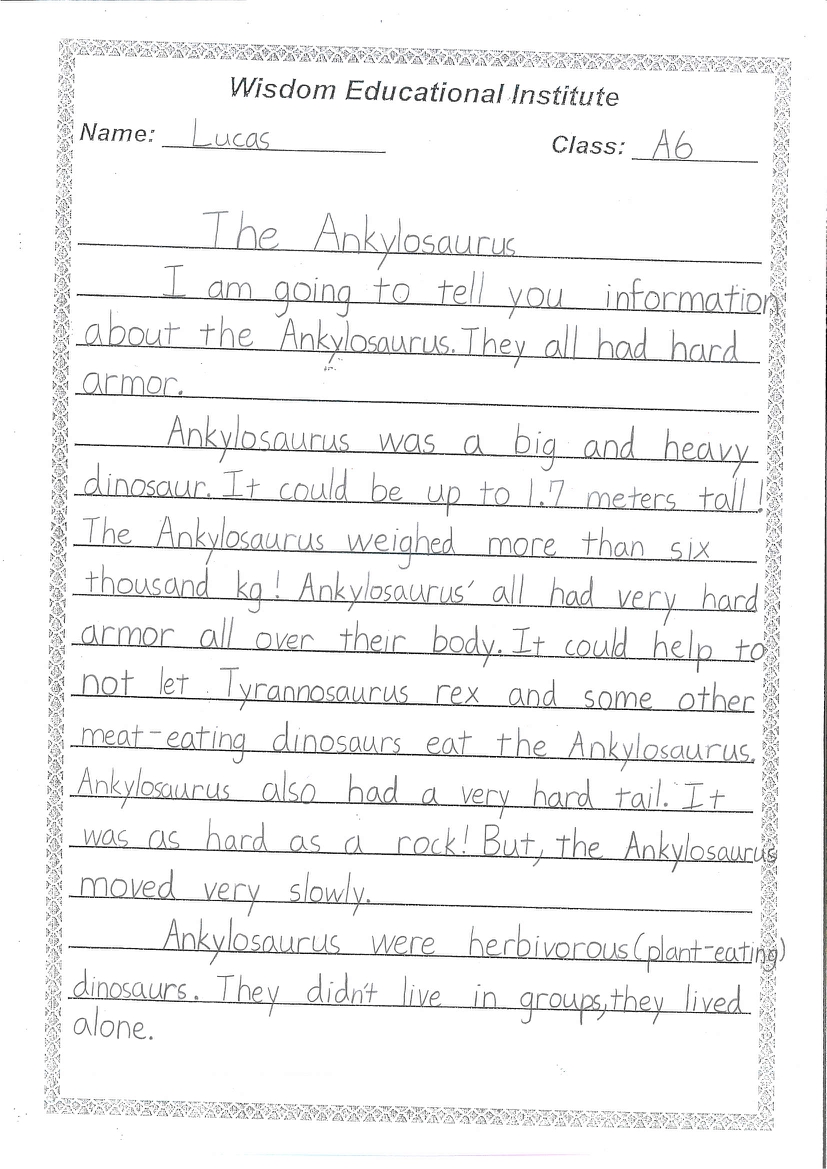 Wisdom Educational Institute
Name: Lucas Class: A6
The Ankylosaurus
I am going to tell you information
about the Ankylosaurus. They all had hard
armor.
Ankylosaurus was a big and heavy
dinosaur. It could be up to 1.7 meters tall!
The Ankylosaurus weighed more than six
thousand kg! Ankylosaurus' all had very hard
armor all over their body. It could help to
not let Tyrannosaurus rex and some other
meat-eating dinosaurs eat the Ankylosaurus.
Ankylosaurus also had a very hard tail. It
was as hard as a rock! But, the Ankylosaurus
moved very slowly.
Ankylosaurus were herbivorous (plant-eating)
dinosaurs. They didn't live in groups, they lived
alone.